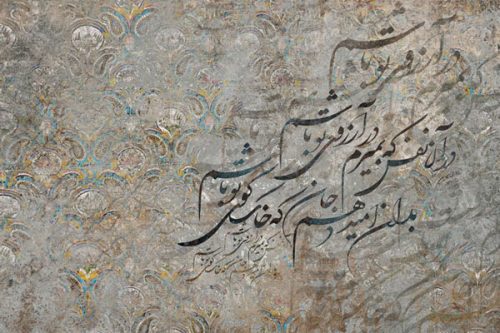 در آرزوی تو باشم
در آن نفس که بمیرم در آرزوی تو باشم
بدان امید دهم جان که خاک کوی تو باشم